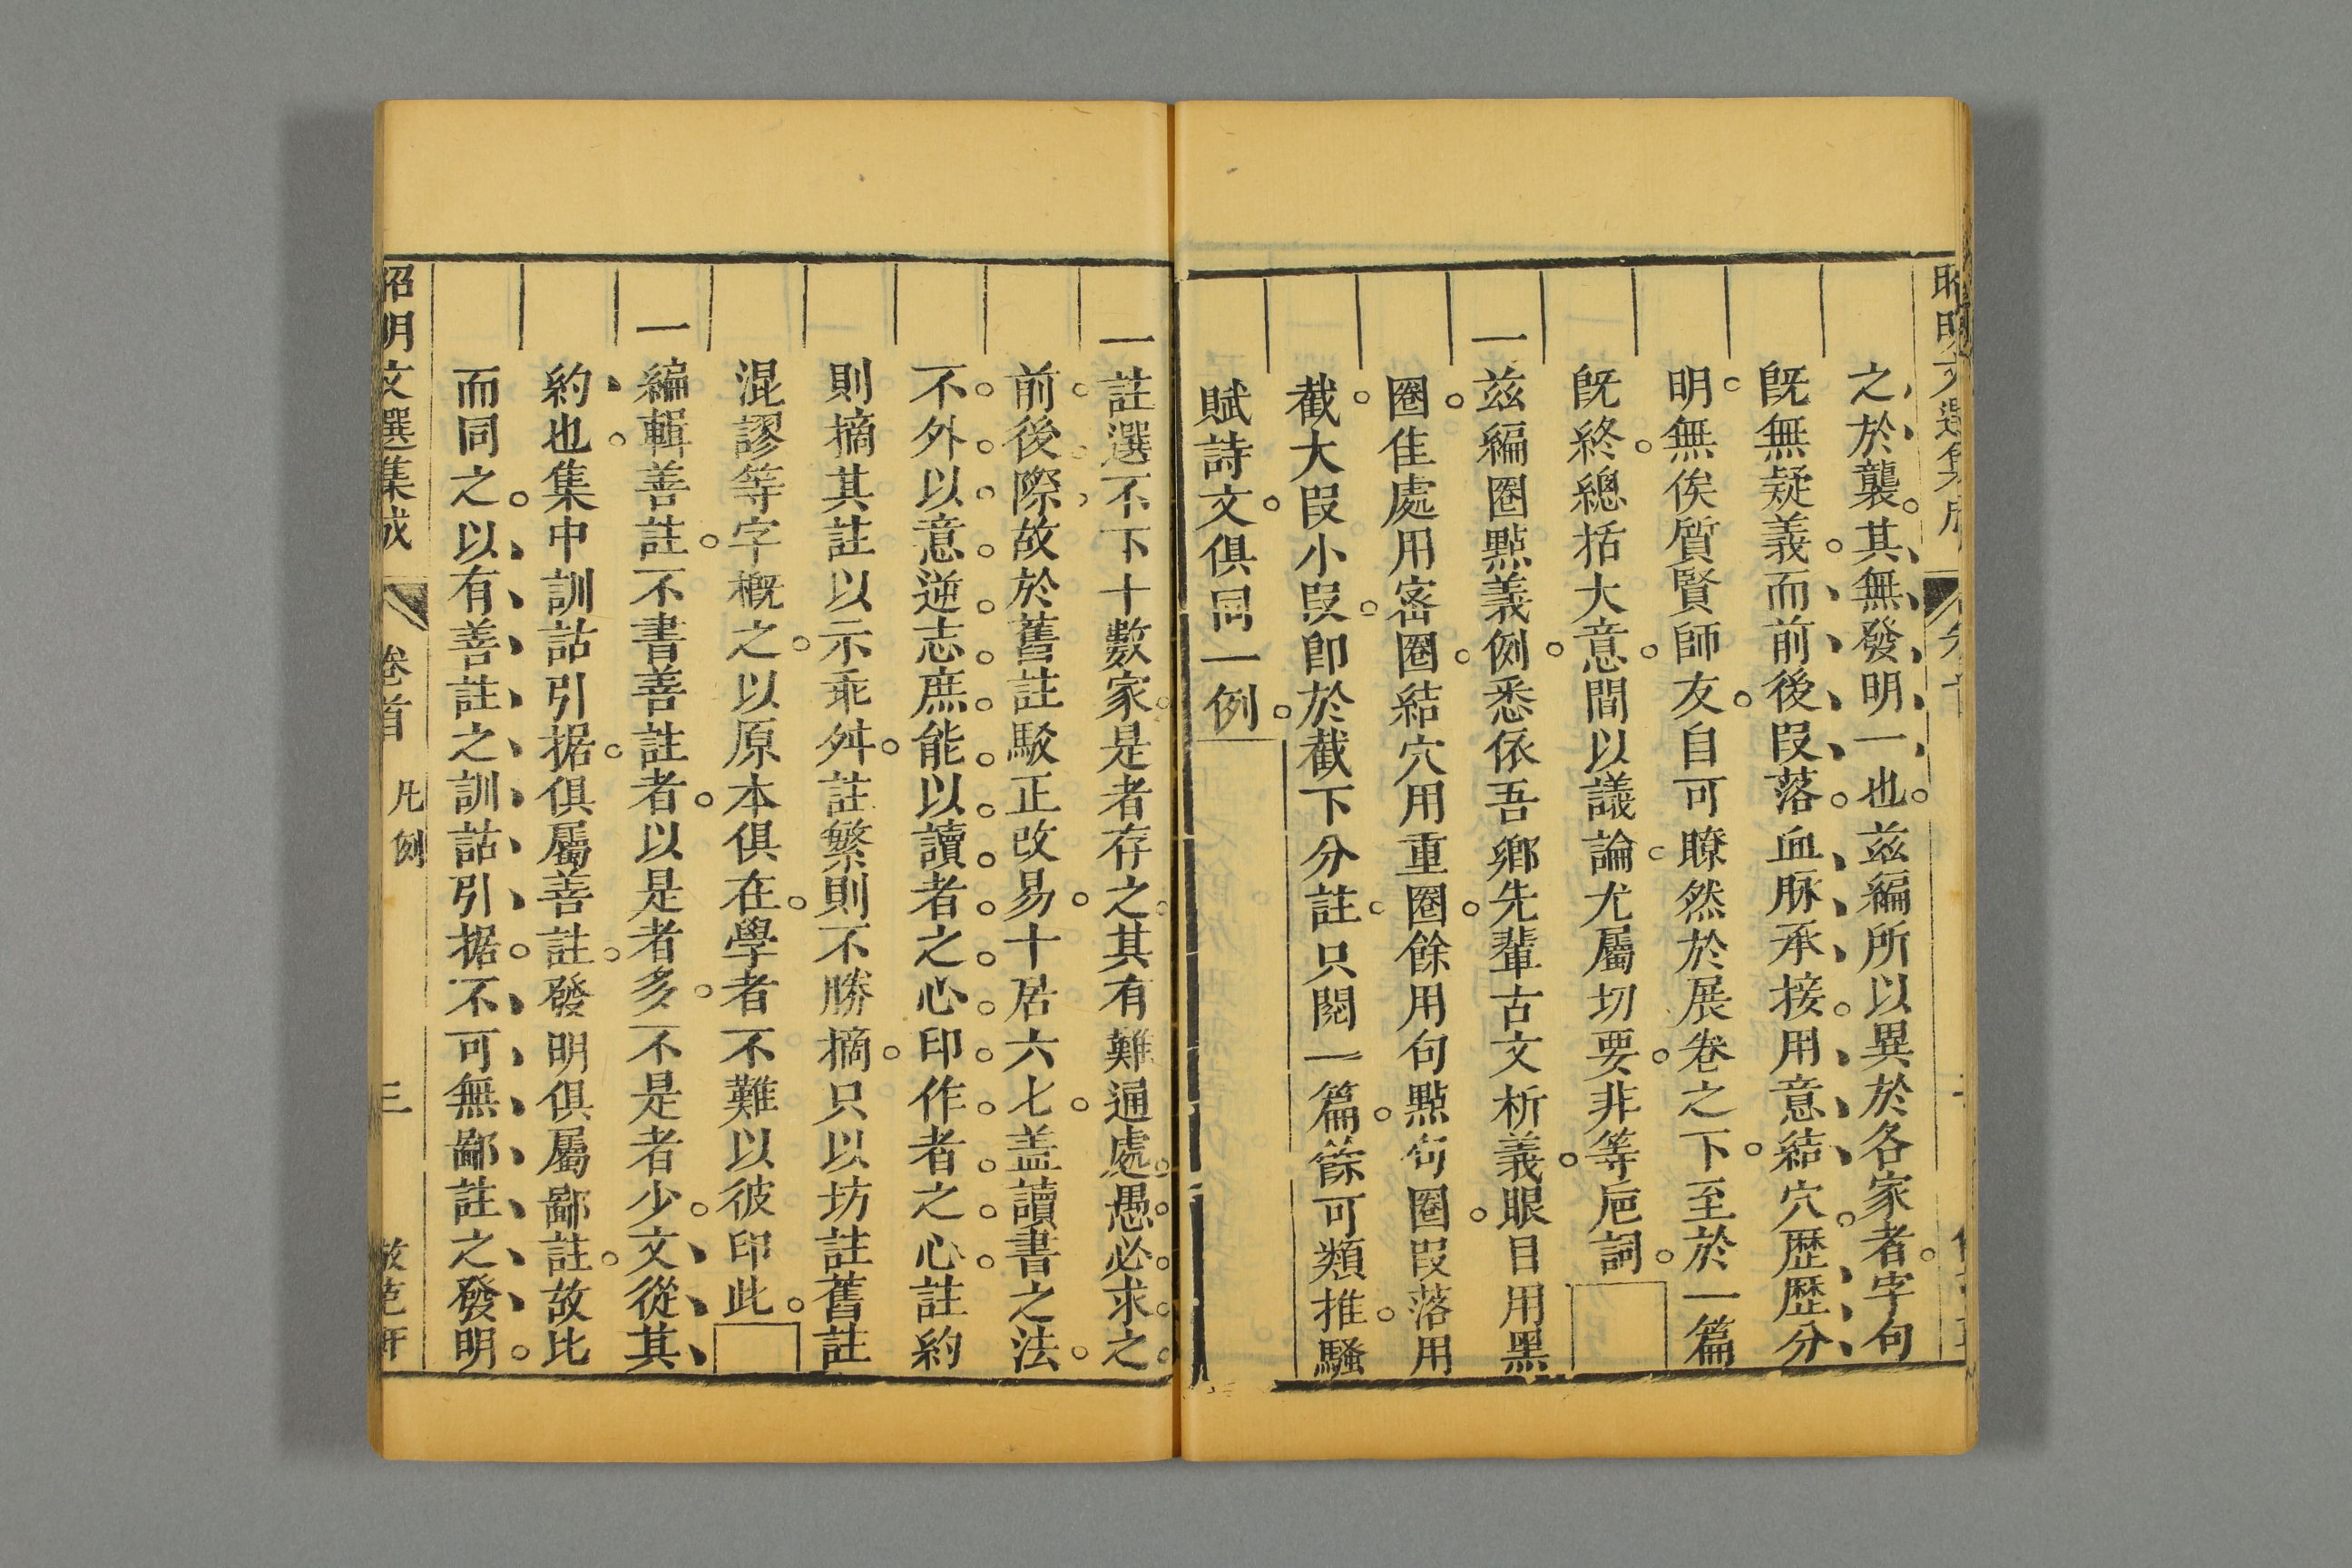 之於襲其無發明一也兹編所以異於各家者字句
旣無疑義而前後段落血脉承接用意結穴歷歷分
明無俟質賢師友自可瞭然於展卷之下至於一篇
旣終總括大意間以議論尤屬切要非等巵詞
一兹編圈點義例悉依吾鄉先輩古文析義眼目用黑
圈佳處用密圈結穴用重圈餘用句點句圈段落用
截大段小段卽於截下分註只閱一篇餘可類推騷
賦詩文俱同一例
一註選不下十數家是者存之其有難通處愚必求之
前後際故於舊註駁正改易十居六七盖讀書之法
不外以意逆志庶能以讀者之心印作者之心註約
則摘其註以示乖舛註繁則不勝摘只以坊註舊註
混謬等字槪之以原本俱在學者不難以彼印此
一編輯善註不書善註者以是者多不是者少文從其
約也集中訓詁引据俱屬善註發明俱屬鄙註故比
而同之以有善註之訓詁引据不可無鄙註之發明
昭明文選集成 卷首 凡例 三